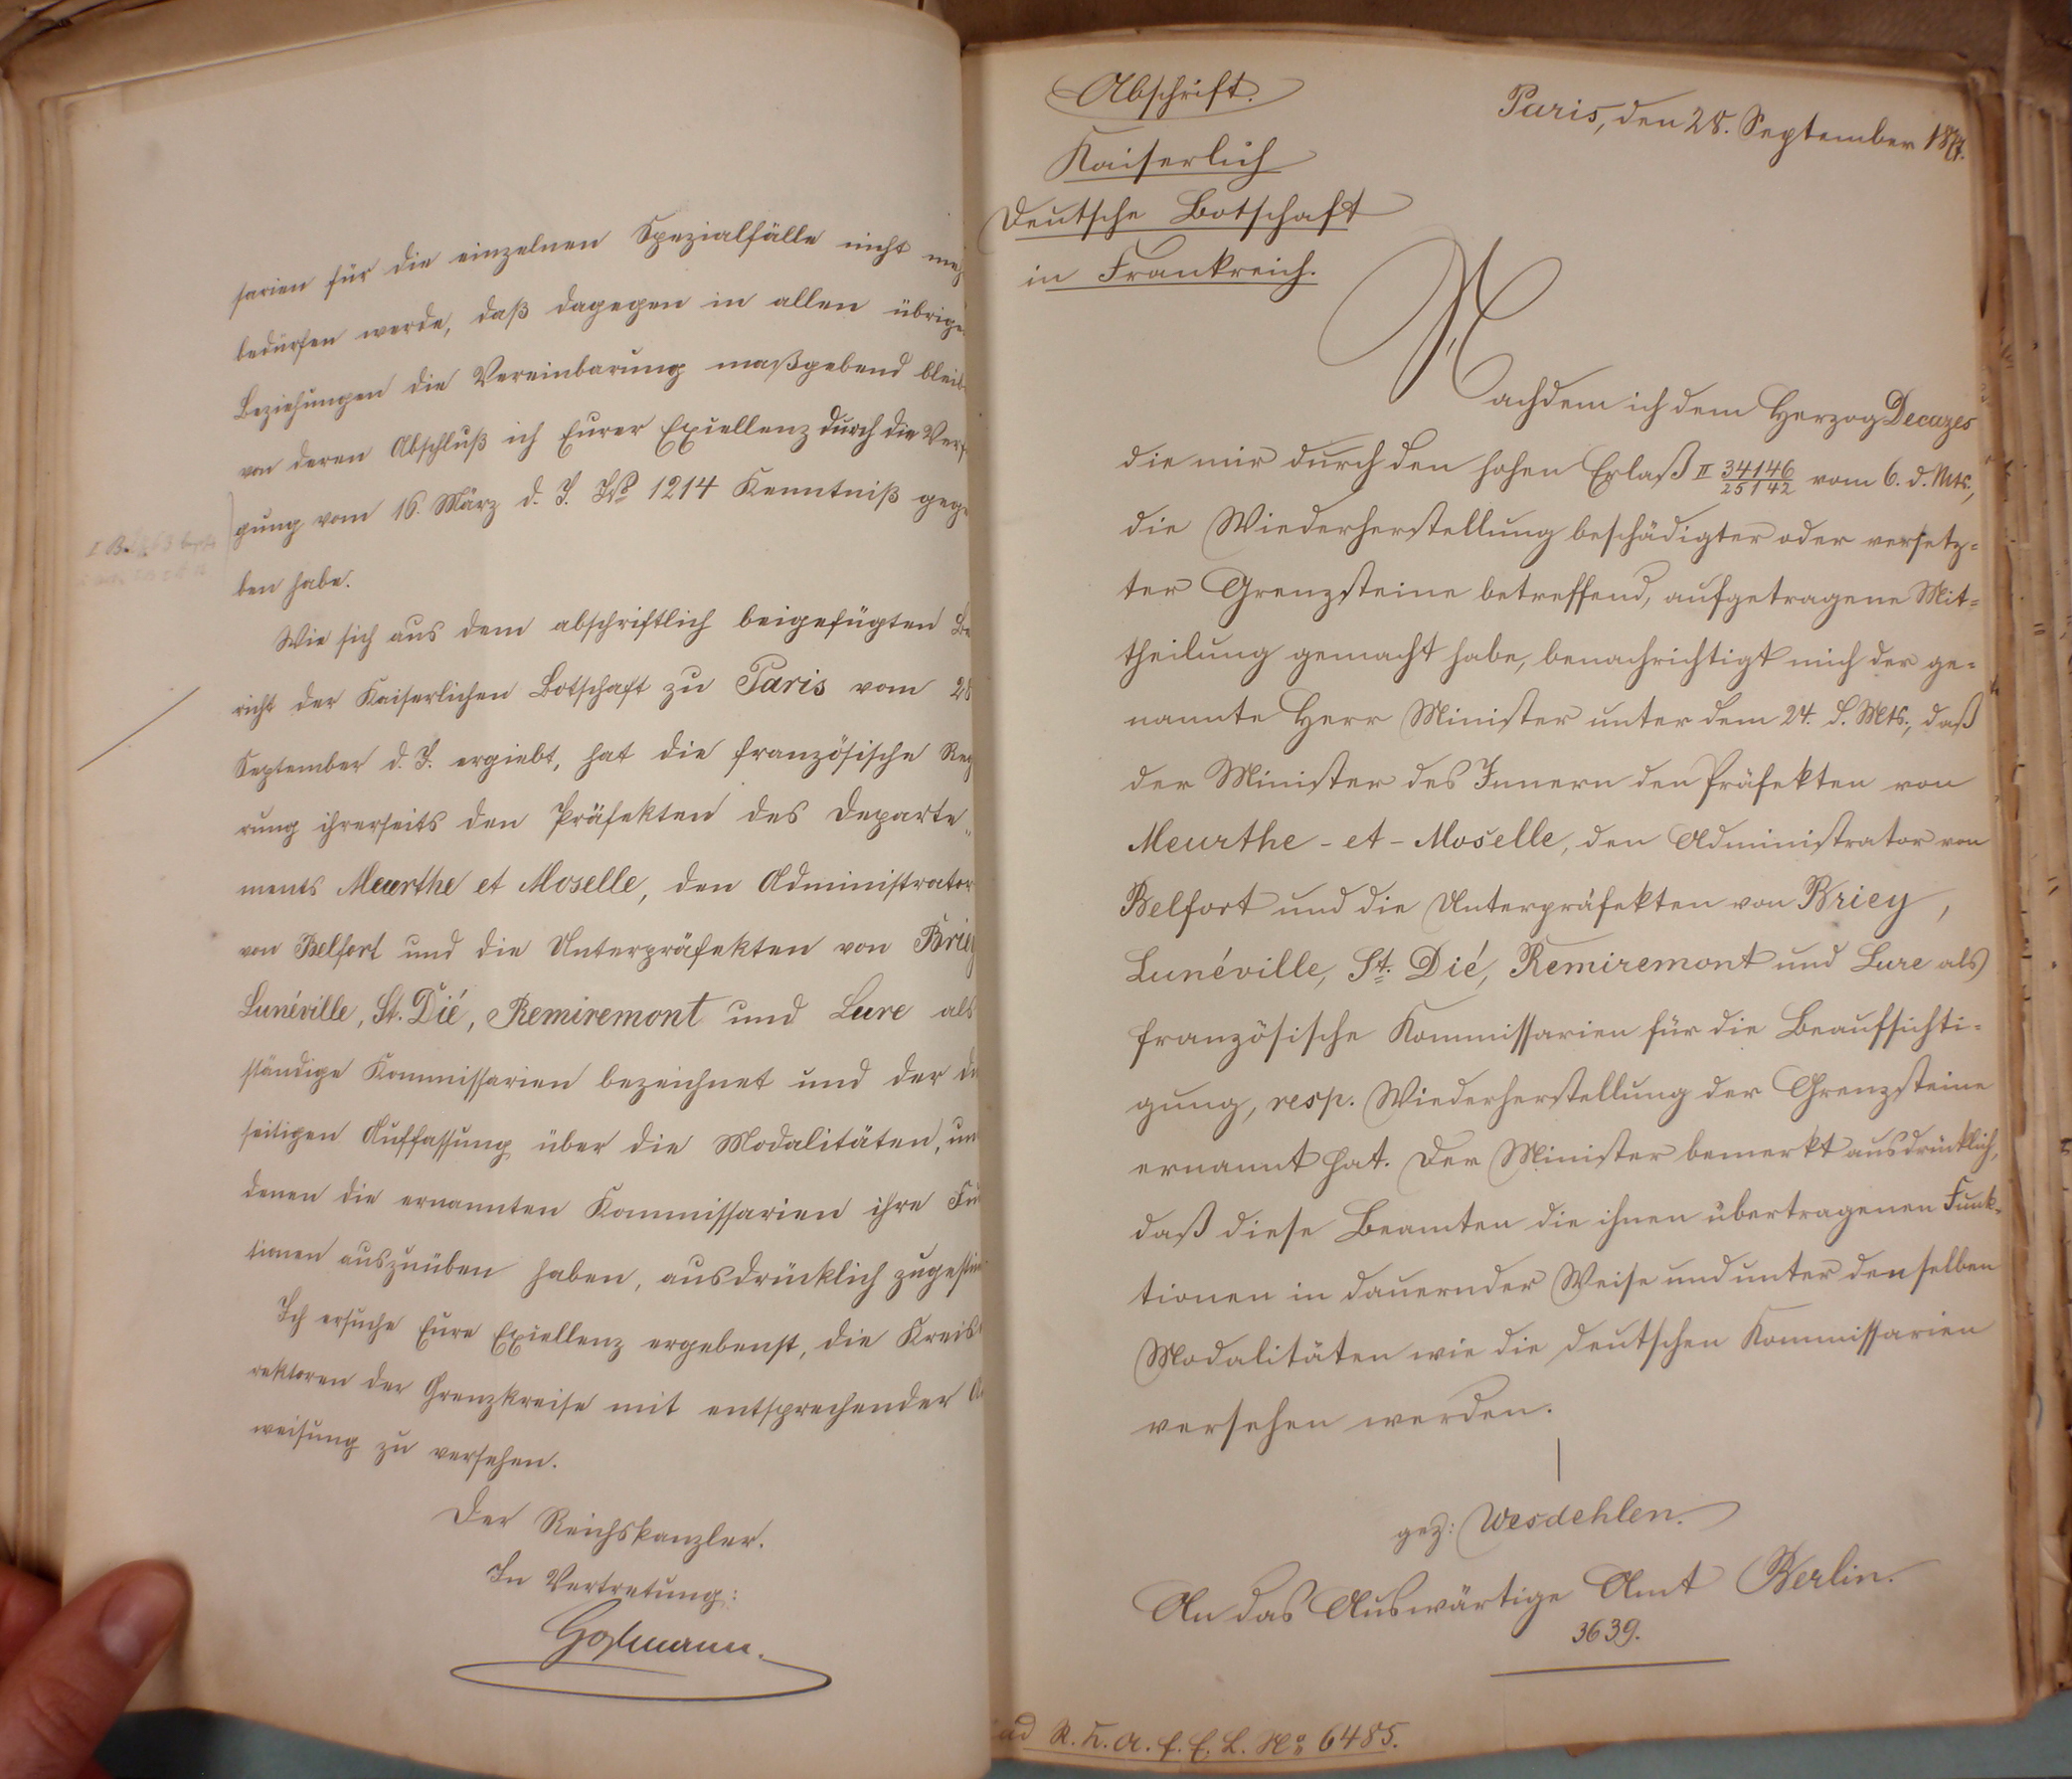 sarien für die einzelnen Spezialfälle nicht meh
bedürfen werde, daß dagegen in allen übrige
Beziehungen die Vereinbarung maßgebend bleib
von deren Abschluß ich Eurer Exzellenz durch die Verf
gung vom 16. März d. J. No 1214 Kenntniß gege
ben habe.
Wie sich aus dem abschriftlich beigefügten Be
richt der Kaiserlichen Botschaft zu Paris vom 28
September d. J. ergiebt, hat die französische Reg
rung ihrerseits den Präfekten des Departe-
ments Meurthe et Moselle, den Administrator
von Belfort und die Unterpräfekten von Briey
Lunéville, St. Dié, Remiremont und Lure als
ständige Kommissarien bezeichnet und der die
seitigen Auffassung über die Modalitäten, un
denen die ernannten Kommissarien ihre Fu
tionen auszuüben haben, ausdrücklich zugestim
Ich ersuche Eure Exzellenz ergebenst, die Kreis
rektoren der Grenzkreise mit entsprechender A
weisung zu versehen.
Der Reichskanzler.
In Vertretung:
Hofmann.
Abschrift.
Paris, den 28. September 1877.
Kaiserlich
Deutsche Botschaft
in Frankreich.
Nachdem ich dem Herzog Decazes
die mir durch den hohen Erlaß II 34146/25142 vom 6. d. Mts.,
die Wiederherstellung beschädigter oder versetz-
ter Grenzsteine betreffend, aufgetragene Mit-
theilung gemacht habe, benachrichtigt mich der ge-
nannte Herr Minister unter dem 24. d. Mts., daß
der Minister des Innern den Präfekten von
Meurthe-et-Moselle, den Administrator von
Belfort und die Unterpräfekten von Briey,
Lunéville, St. Dié, Remiremont und Lure als
französische Kommissarien für die Beaufsichti-
gung, resp. Wiederherstellung der Grenzsteine
ernannt hat. Der Minister bemerkt ausdrücklich,
daß diese Beamten die ihnen übertragenen Funk-
tionen in dauernder Weise und unter denselben
Modalitäten wie die deutschen Kommissarien
versehen werden.
gez: Wesdehlen.
An das Auswärtige Amt Berlin.
3639.
ad R. K. A. f. E. L. No 6485.